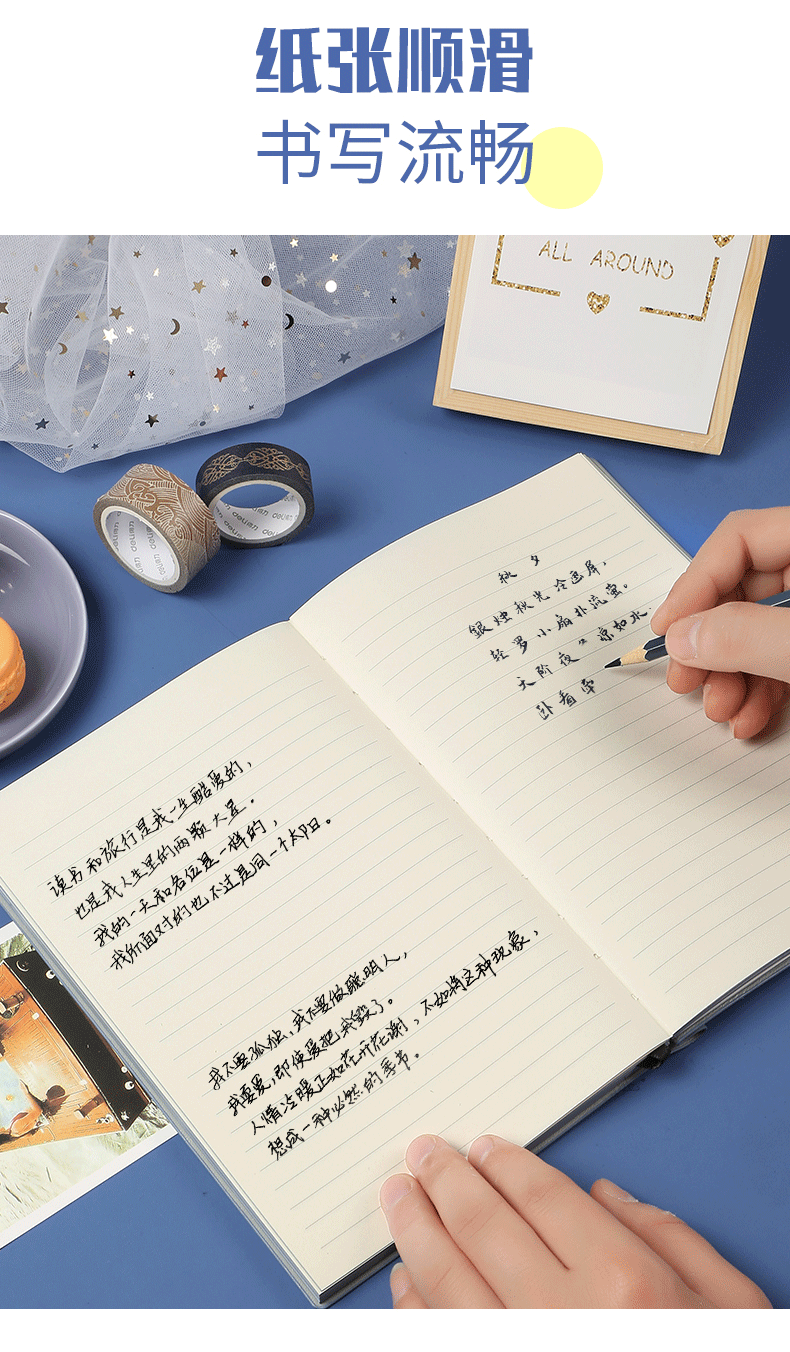 纸张顺滑
书写流畅
ALL AROUND
deli
秋夕
银烛秋光冷画屏,
轻罗小扇扑流萤。
天阶夜色凉如水.
卧看牵
读书和旅行是我一生酷爱的,
也是我人生里的两颗大星。
我的一天和各位是一样的,
我所面对的也不过是同一个太阳。
我不要孤独,我不要做聪明人,
我要爱,即使爱把我毁了。
人情冷暖正如花开花谢,不如将这种现象,
想成一种必然的季节。